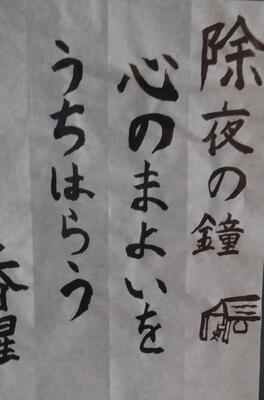 除夜の鐘
心のまよいを
うちはらう